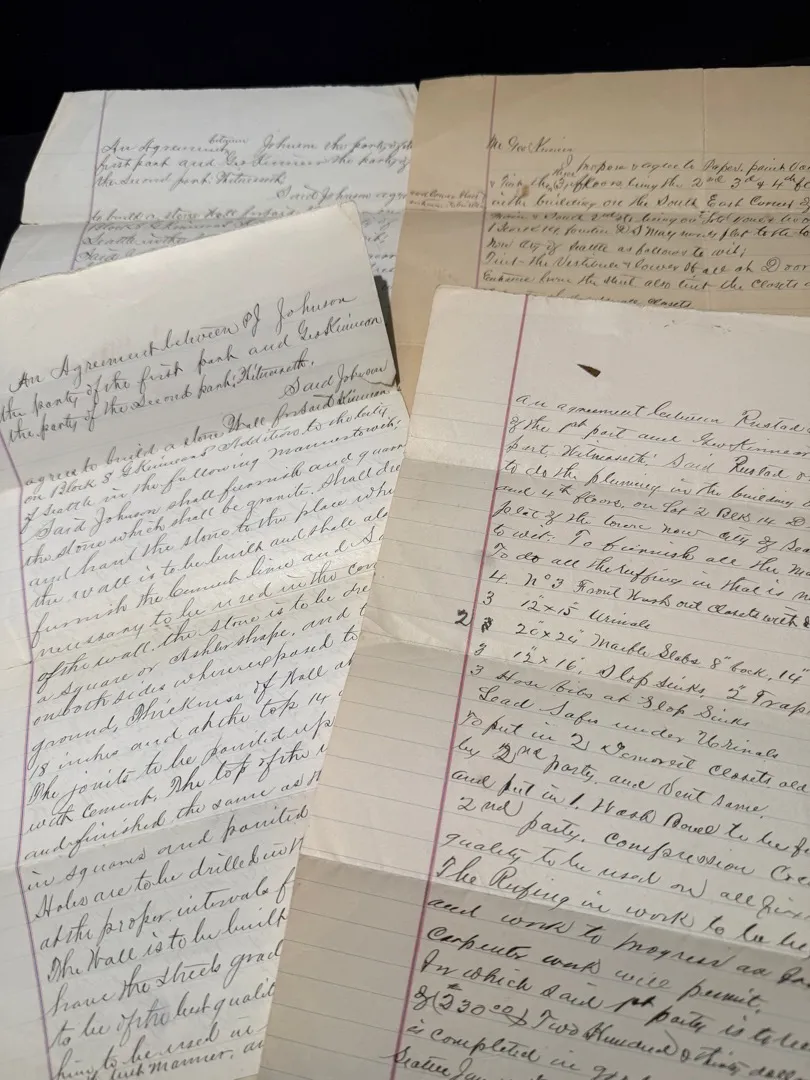 An Agreement between Johnson the party of
first part and Geo Kinnear the party of
the second part, Witnesseth,
Said Johnson agrees
to build a stone Wall for said
Mr Geo Kinnear
I propose & agree to Paper, paint
& Tint the 3 floors being the 2nd 3rd & 4th
in the building on the South East Corner of
Main & South 2nd St being on
now city of Seattle as follows to wit;
Tint the Vestibule & lower Hall at Door
Entrance from the street also tint the closets
closets
An Agreement between PJ Johnson
the party of the first part and Geo Kinnear
the party of the Second part; Witnesseth.
Said Johnson
agrees to build a stone Wall for said Kinnear
on Block 8 G Kinnears Addition to the City
of Seattle in the following manner to wit;
Said Johnson shall furnish and
the stone which shall be granite. Shall
and haul the stone to the place
the wall is to be built and shall
furnish the Cement lime and
necessary to be used in the
of the wall, the stone is to be
a square or Ashler shape, and
on both sides where exposed to
ground, Thickness of Wall
18 inches and at the top 14
The joints to be pointed up
with Cement, The top of the
and finished the same as
in squares and pointed
Holes are to be drilled
at the proper intervals
The Wall is to be built
have the Streets
to be of the best
him to be used in
manner,
an agreement between Rustad
of the 1st part and Geo Kinnear
part, Witnesseth; Said Rustad
to do the pluming in the building
and 4th floors, on Lot 2 Blk 14 D
plat of the town now City of
to wit. To furnish all the
To do all the ruffing in that is
4. No 3 Front Wash out Closets with
3 12"x15" Urinals
2 20"x24" Marble Slabs 8" back, 14"
3 12"x16", Slop Sinks, 2" Trap
3 Hose bibs at Slop Sinks
Lead Safes under Urinals
To put in 2 closets old
by 2nd party, and Vent same,
and put in 1. Wash Bowl to be
2nd party. Compression
quality to be used on all
The Rufing in work to be
and work to progress as
Carpenter work will permit.
In which said 1st party is to
of ($230 00) Two Hundred & thirty
is completed in
Seattle